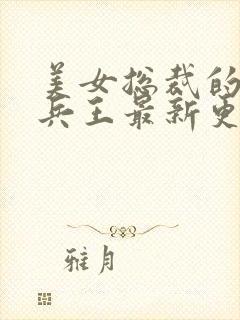 美女总裁的
兵王最新更
雅月